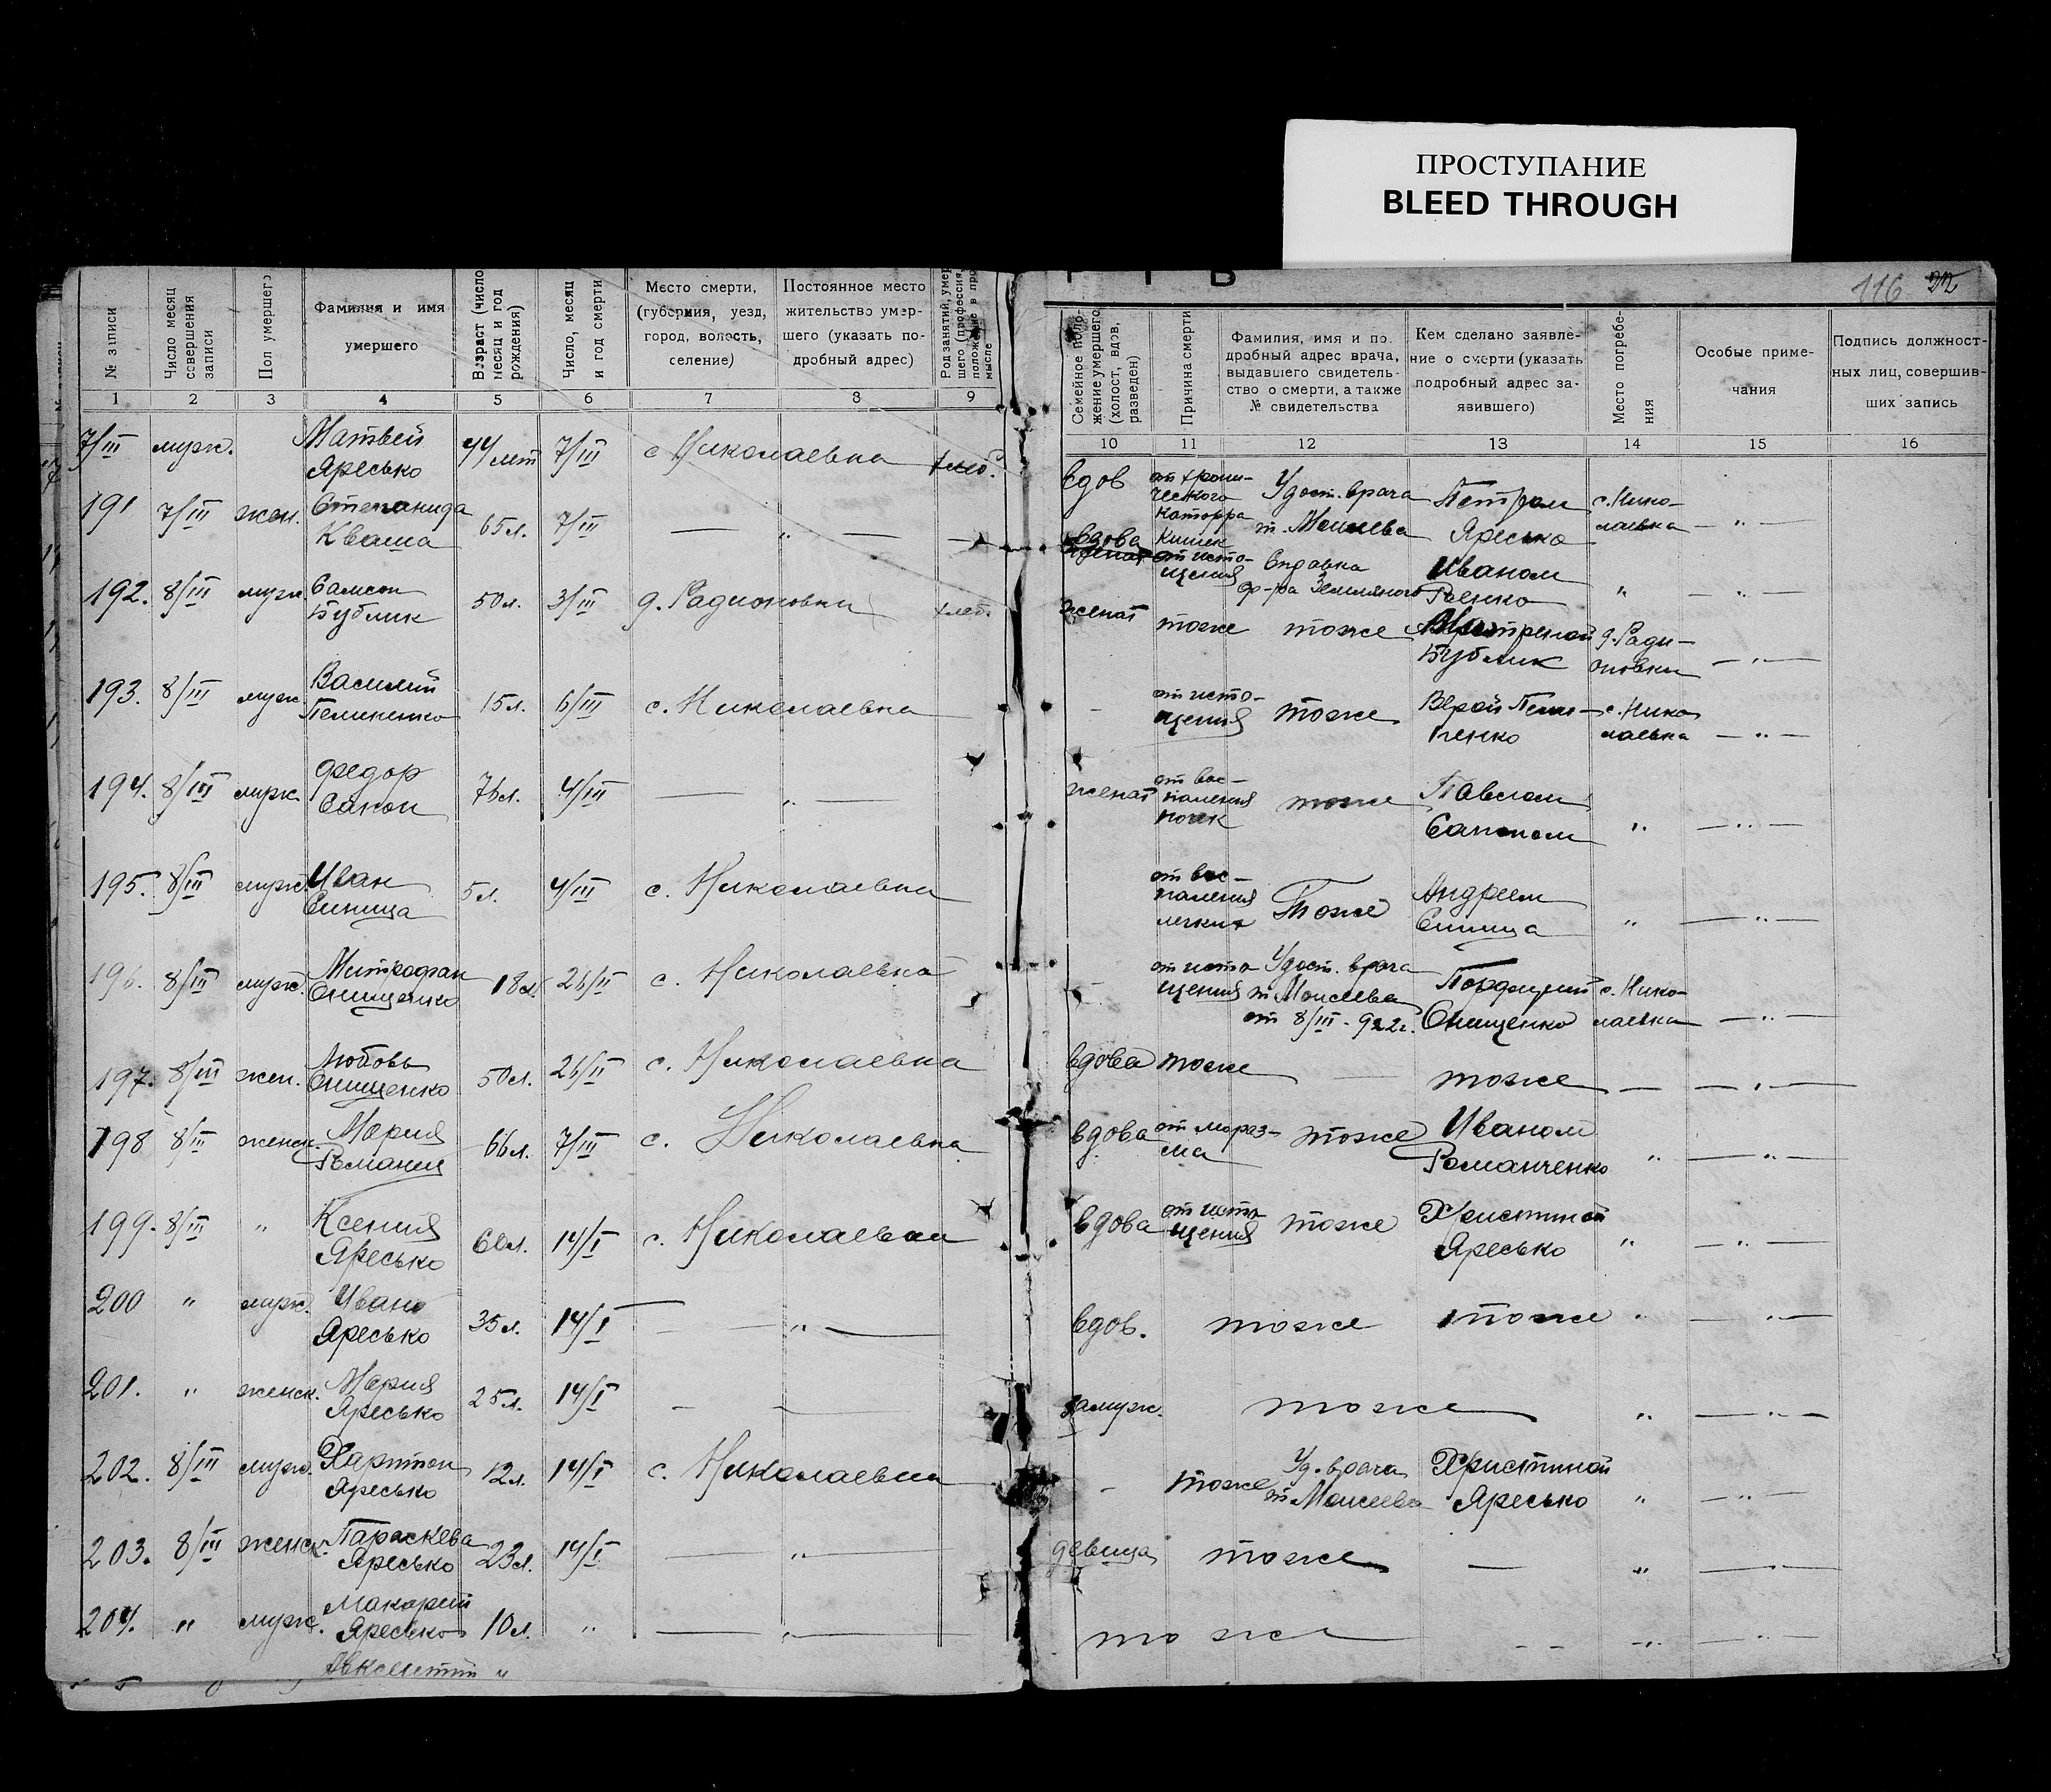 ПРОСТУПАНИЕ
BLEED THROUGH
116 22
№ записи
Число месяц совершения записи
Пол умершего
Фамилия и имя умершего
Возраст (число месяц и год рождения)
Число, месяц и год смерти
Место смерти, (губерния, уезд, город, волость, селение)
Постоянное место жительство умер-шего (указать по-дробный адрес)
Род занятий, умер шего (профессия, положение в про мысле
1 2 3 4 5 6 7 8 9
Семейное поло-жение умершего (холост, вдов, разведен)
Причина смерти
Фамилия, имя и по дробный адрес врача, выдавшего свидетель-ство о смерти, а также № свидетельства
Кем сделано заявле-ние о смерти (указать подробный адрес за-явившего)
Место погребе-ния
Особые приме-чания
Подпись должност-ных лиц, совершив-ших запись
10 11 12 13 14 15 16
7/III муж. Матвей Яресько 44 лет 7/III с Николаевка хлеб.
191 7/III жен. Степанида Кваша 65 л. 7/III — „ —
192. 8/III муж. Самсон Бублик 50 л. 3/III д. Радионовки хлеб.
193. 8/III муж. Василий 15 л. 6/III с. Николаевка
194. 8/III муж. Федор Сапон 76 л. 4/III — „ —
195. 8/III муж. Иван Синица 5 л. 4/III с. Николаевка
196. 8/III муж. Митрофан Онищенко 18 л. 26/II с. Николаевка
197. 8/III жен. Любовь Онищенко 50 л. 26/II с. Николаевка
198 8/III женск. Мария 66 л. 7/III с. Николаевка
199. 8/III „ Ксения Яресько 60 л. 14/I с. Николаевка
200 „ муж. Иван Яресько 35 л. 14/I — „ —
201. „ женск. Мария Яресько 25 л. 14/I — —
202. 8/III муж. Харитон Яресько 12 л. 14/I с. Николаевка
203. 8/III женск. Параскева Яресько 23 л. 14/I — „ —
204. „ муж. Макарий Яресько 10 л. „ — „ —
Авксентий „
вдов от хрони-ческого катарра кишек Удост. врача т. Моисеева Петром Яресько с. Нико-лаевка — „ —
вдова от исто-щения Справка Земляного Иваном „ — „ —
женат тоже тоже Бублик д. Ради-оновки — „ —
- от исто-щения тоже Верой с. Нико лаевка — „ —
женат от вос-паления почек тоже Павлом Сапоном „ — „ —
от вос-паления легких Тоже Андреем Синица „ — „ —
- от исто щения Удост. врача т. Моисеева от 8/III - 922 г. Онищенко с. Нико-лаевка — „ —
вдова тоже — тоже — — „ —
вдова от мараз-ма тоже Иваном Романченко „ — „ —
вдова от исто щения тоже Христиной Яресько „ — „ —
вдов. тоже тоже „ — „ —
замуж. тоже „ — „ —
- тоже Уд. врача т. Моисеева Христиной Яресько „ — „ —
девица тоже — „ — „ —
тоже - - „ — „ —